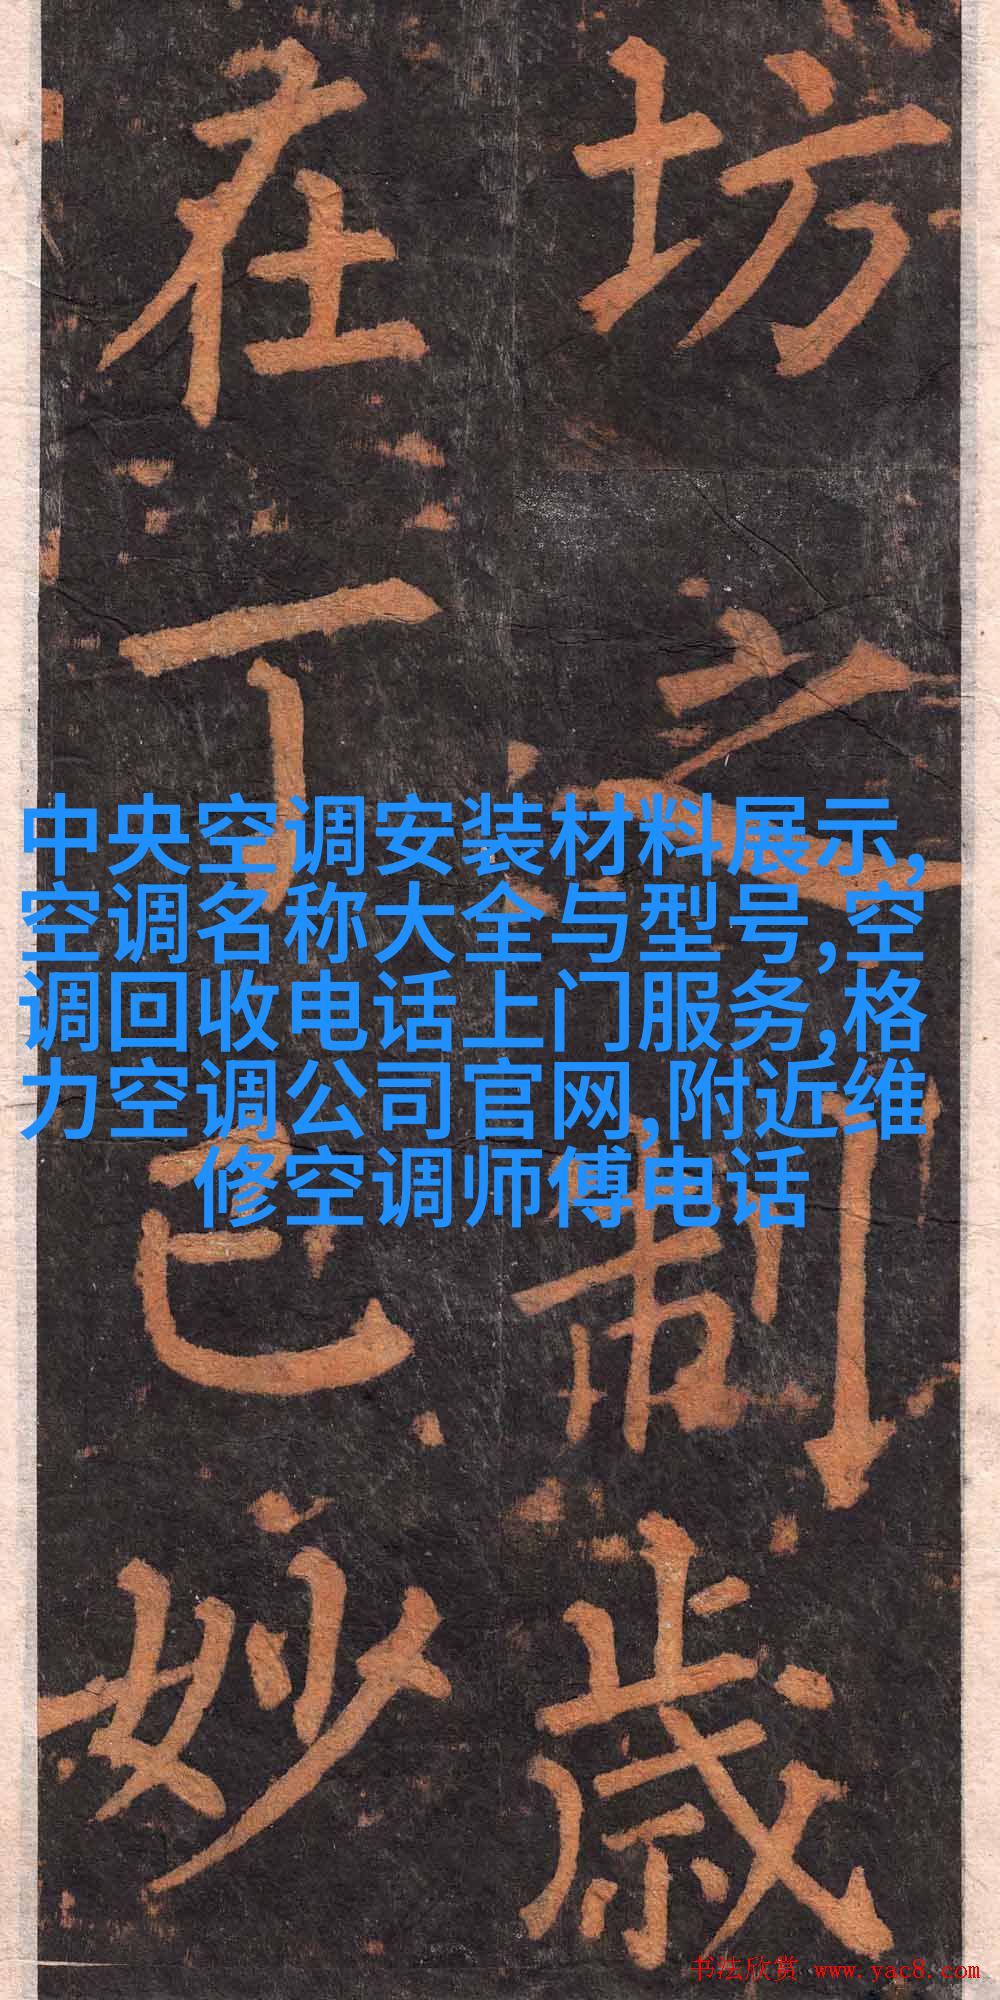 坊之制歲
在丁巳妙
中央空调安装材料展示,
空调名称大全与型号,空
调回收电话上门服务,格
力空调公司官网,附近维
修空调师傅电话
书法欣赏 www.yac8.com